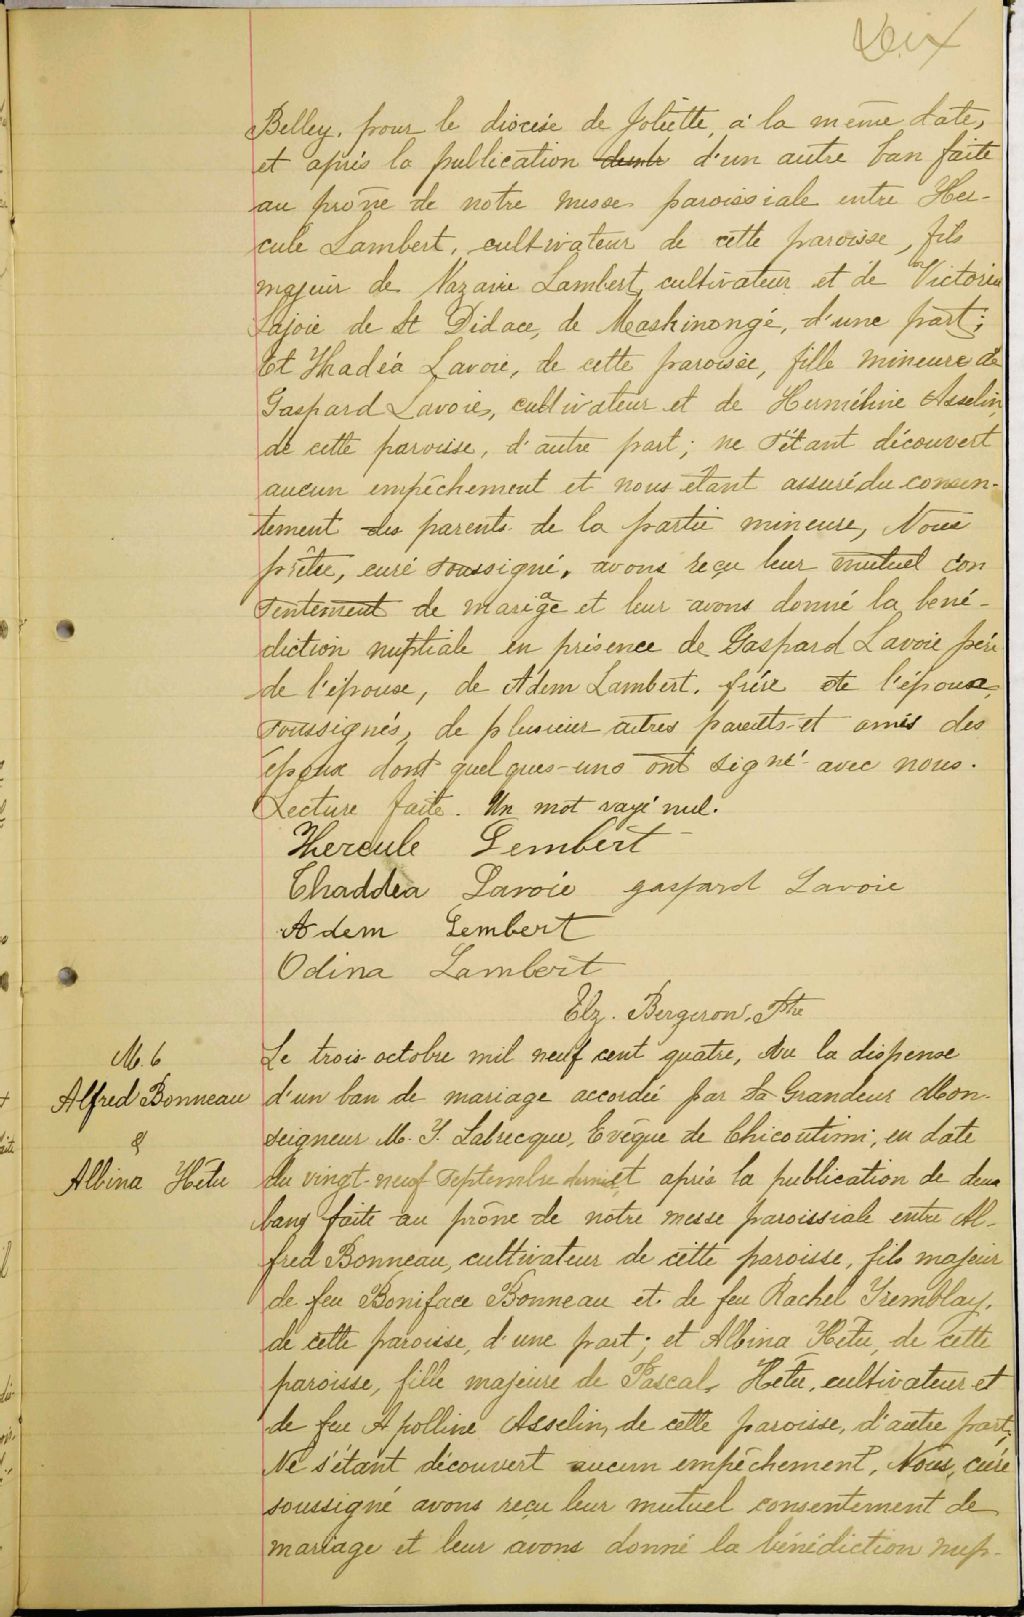 Belley, pour le diocèse de Joliette, à la même date,
et après la publication d'un autre ban faite
au prône de notre messe paroissiale entre Her-
cule Lambert, cultivateur de cette paroisse, fils
majeur de Nazaire Lambert, cultivateur et de Victoria
Lajoie de St Didace, de Maskinongé, d'une part;
Et Thadéa Lavoie, de cette paroisse, fille mineure de
Gaspard Lavoie, cultivateur et de Herméline Asselin
de cette paroisse, d'autre part; ne s'étant découvert
aucun empêchement et nous étant assuré du consen-
tement des parents de la partie mineure, Nous
prêtre, curé soussigné, avons reçu leur mutuel con
sentement de mariage et leur avons donné la béné-
diction nuptiale en présence de Gaspard Lavoie père
de l'épouse, de Adem Lambert, frère de l'époux,
soussignés, de plusieur autres parents et amis des
époux dont quelques-uns ont signé avec nous.
Lecture faite. Un mot rayé nul.
Hercule Lembert
Thaddea Lavoie gaspard Lavoie
Adem Lembert
Odina Lambert
Elz. Bergeron, Ptre
M. 6
Alfred Bonneau
&
Albina Hetu
Le trois octobre mil neuf cent quatre, Vu la dispense
d'un ban de mariage accordée par Sa Grandeur Mon-
seigneur M. T. Labrecque, Evêque de Chicoutimi, en date
du vingt-neuf Septembre dernier et après la publication de deux
bans faite au prône de notre messe paroissiale entre Al-
fred Bonneau, cultivateur de cette paroisse, fils majeur
de feu Boniface Bonneau et de feu Rachel Tremblay,
de cette paroisse, d'une part; et Albina Hetu, de cette
paroisse, fille majeure de Pascal Hetu, cultivateur et
de feu Apolline Asselin, de cette paroisse, d'autre part;
Ne s'étant découvert aucun empêchement, Nous, curé
soussigné avons reçu leur mutuel consentement de
mariage et leur avons donné la bénédiction nup-